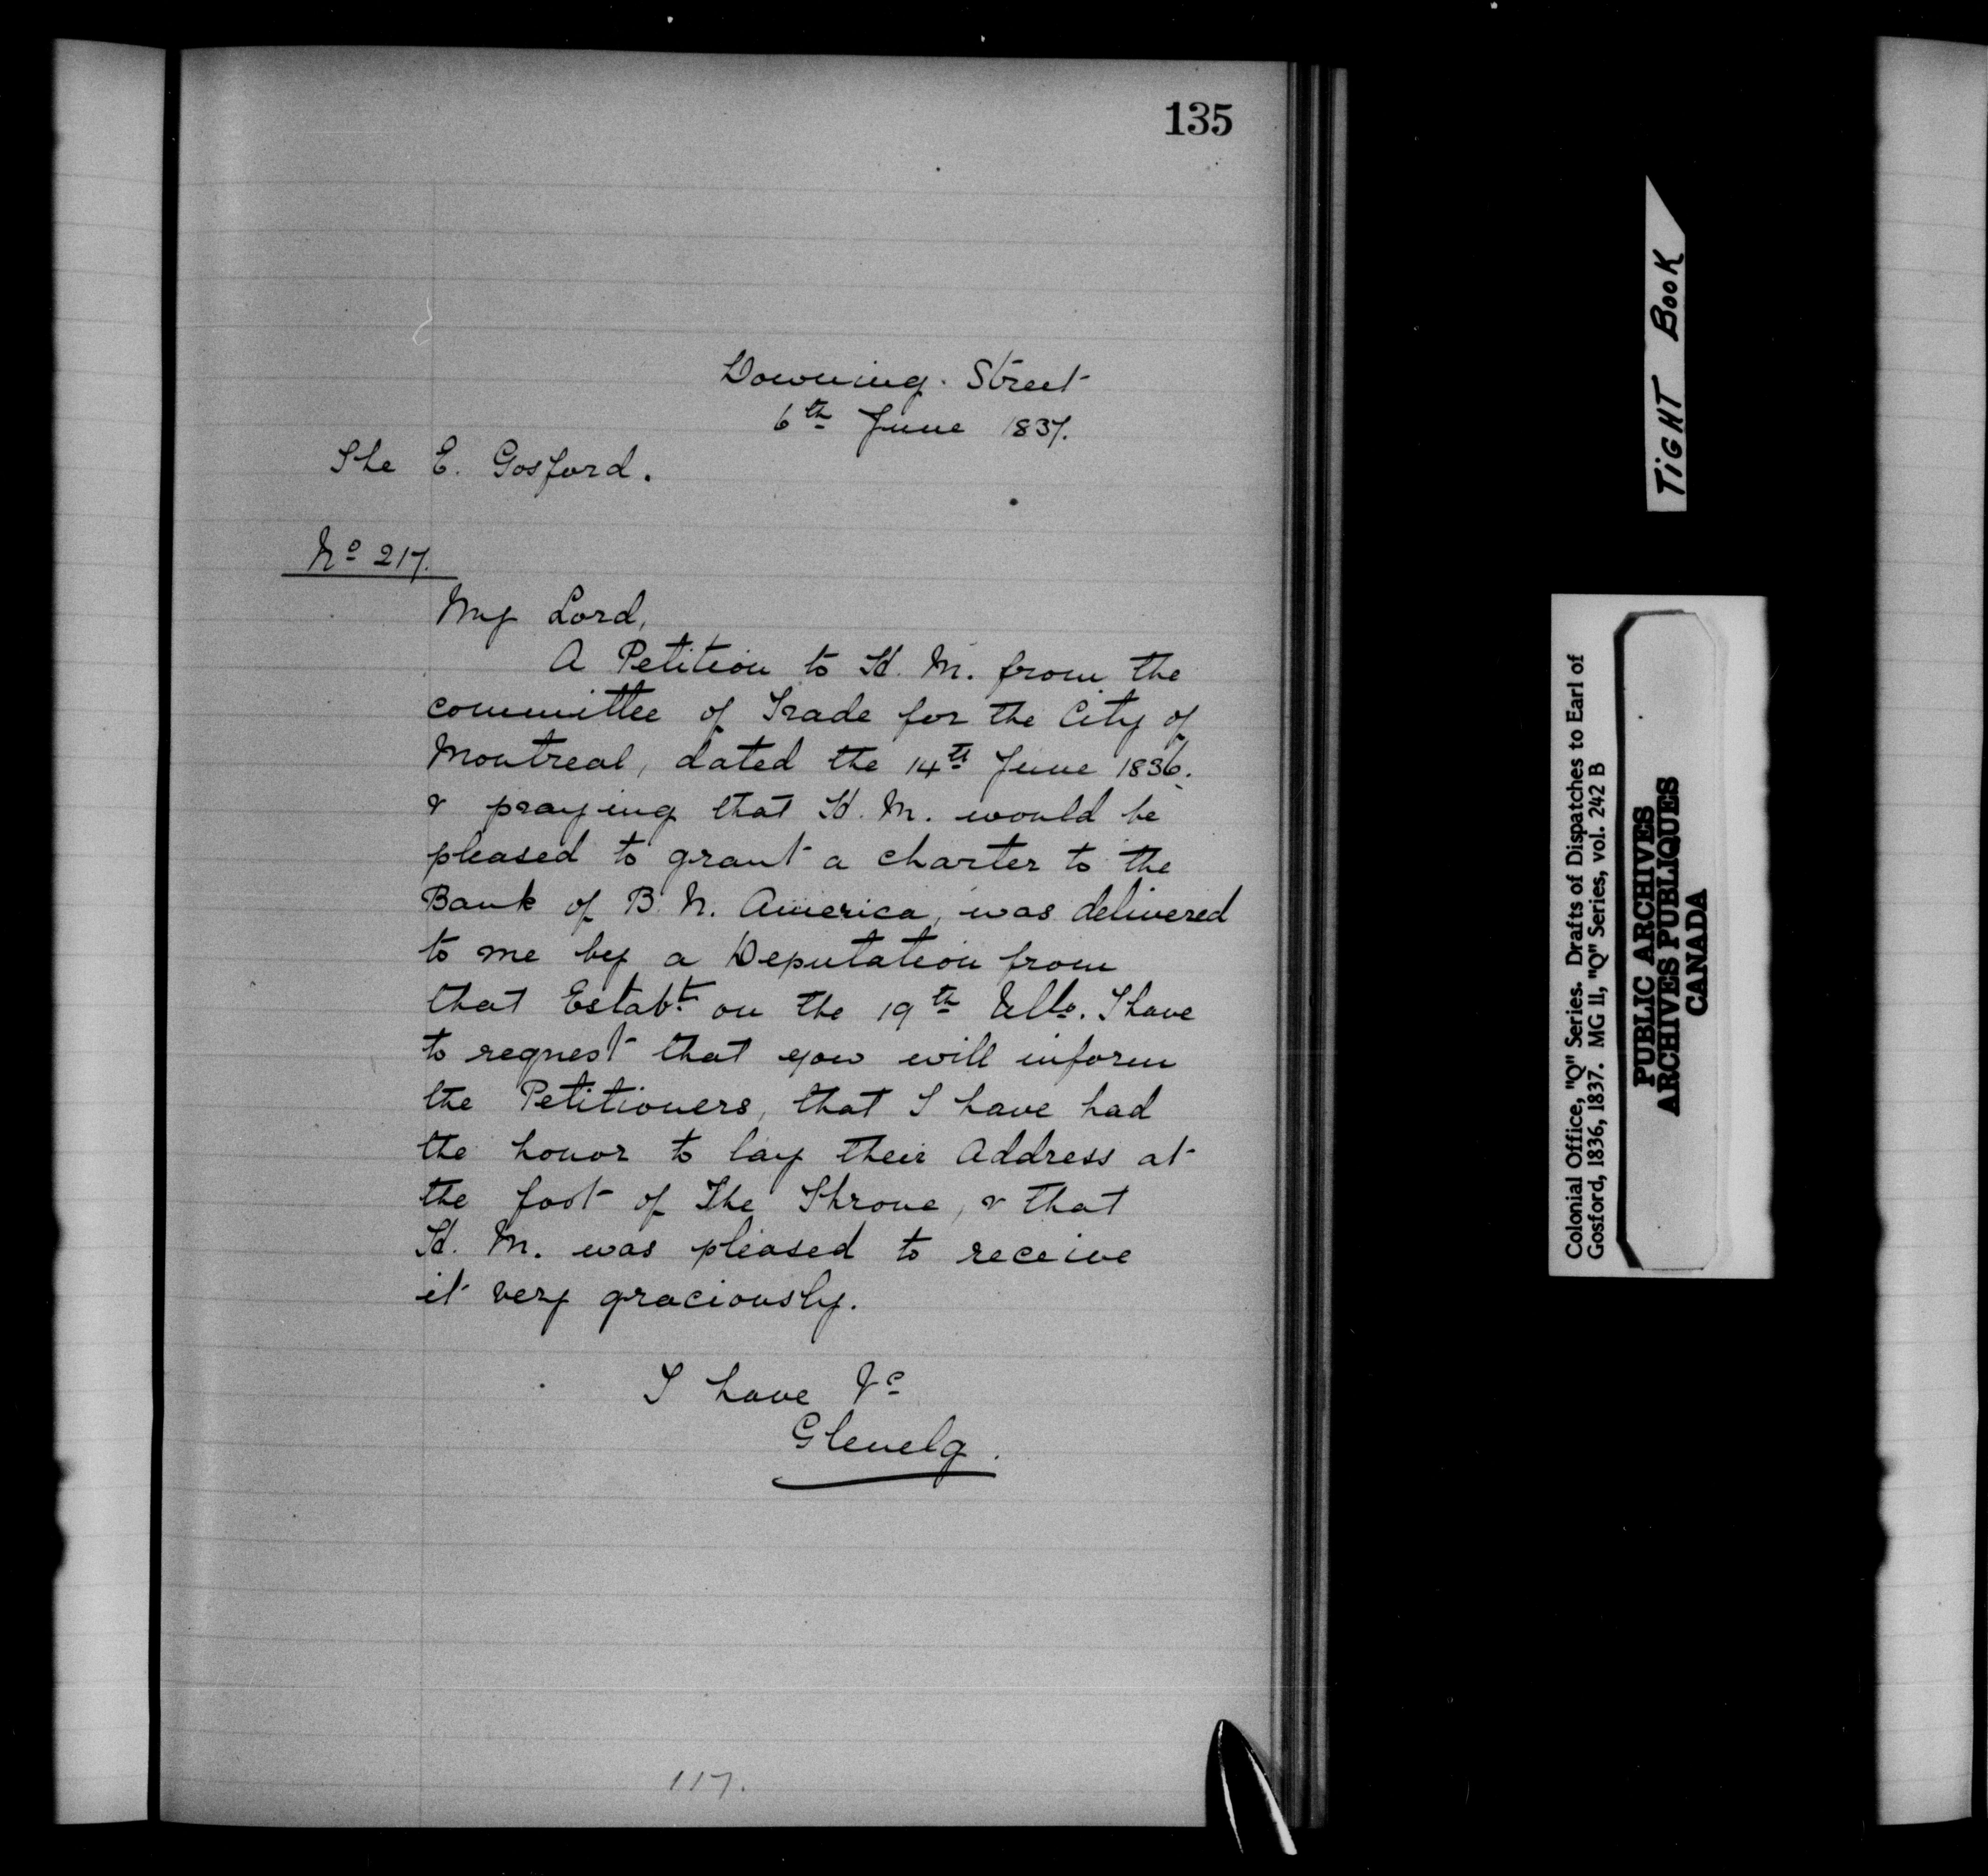 135
Downing. Street
6th June 1837.
The E. Gosford.
No 217.
My Lord,
A Petition to H. M. from the
committee of Trade for the City of
Montreal, dated the 14th June 1836.
& praying that H. M. would be
pleased to grant a charter to the
Bank of B. N. America, was delivered
to me by a Deputation from
that Estabt. on the 19th Ullo. I have
to request that you will inform
the Petitioners, that I have had
the honor to lay their Address at
the foot of The Throne, & that
H. M. was pleased to receive
it very graciously.
I have &c
Glenelg.
117.
TIGHT BOOK
Colonial Office, "Q" Series. Drafts of Dispatches to Earl of
Gosford, 1836, 1837. MG 11, "Q" Series, vol. 242 B
PUBLIC ARCHIVES
ARCHIVES PUBLIQUES
CANADA